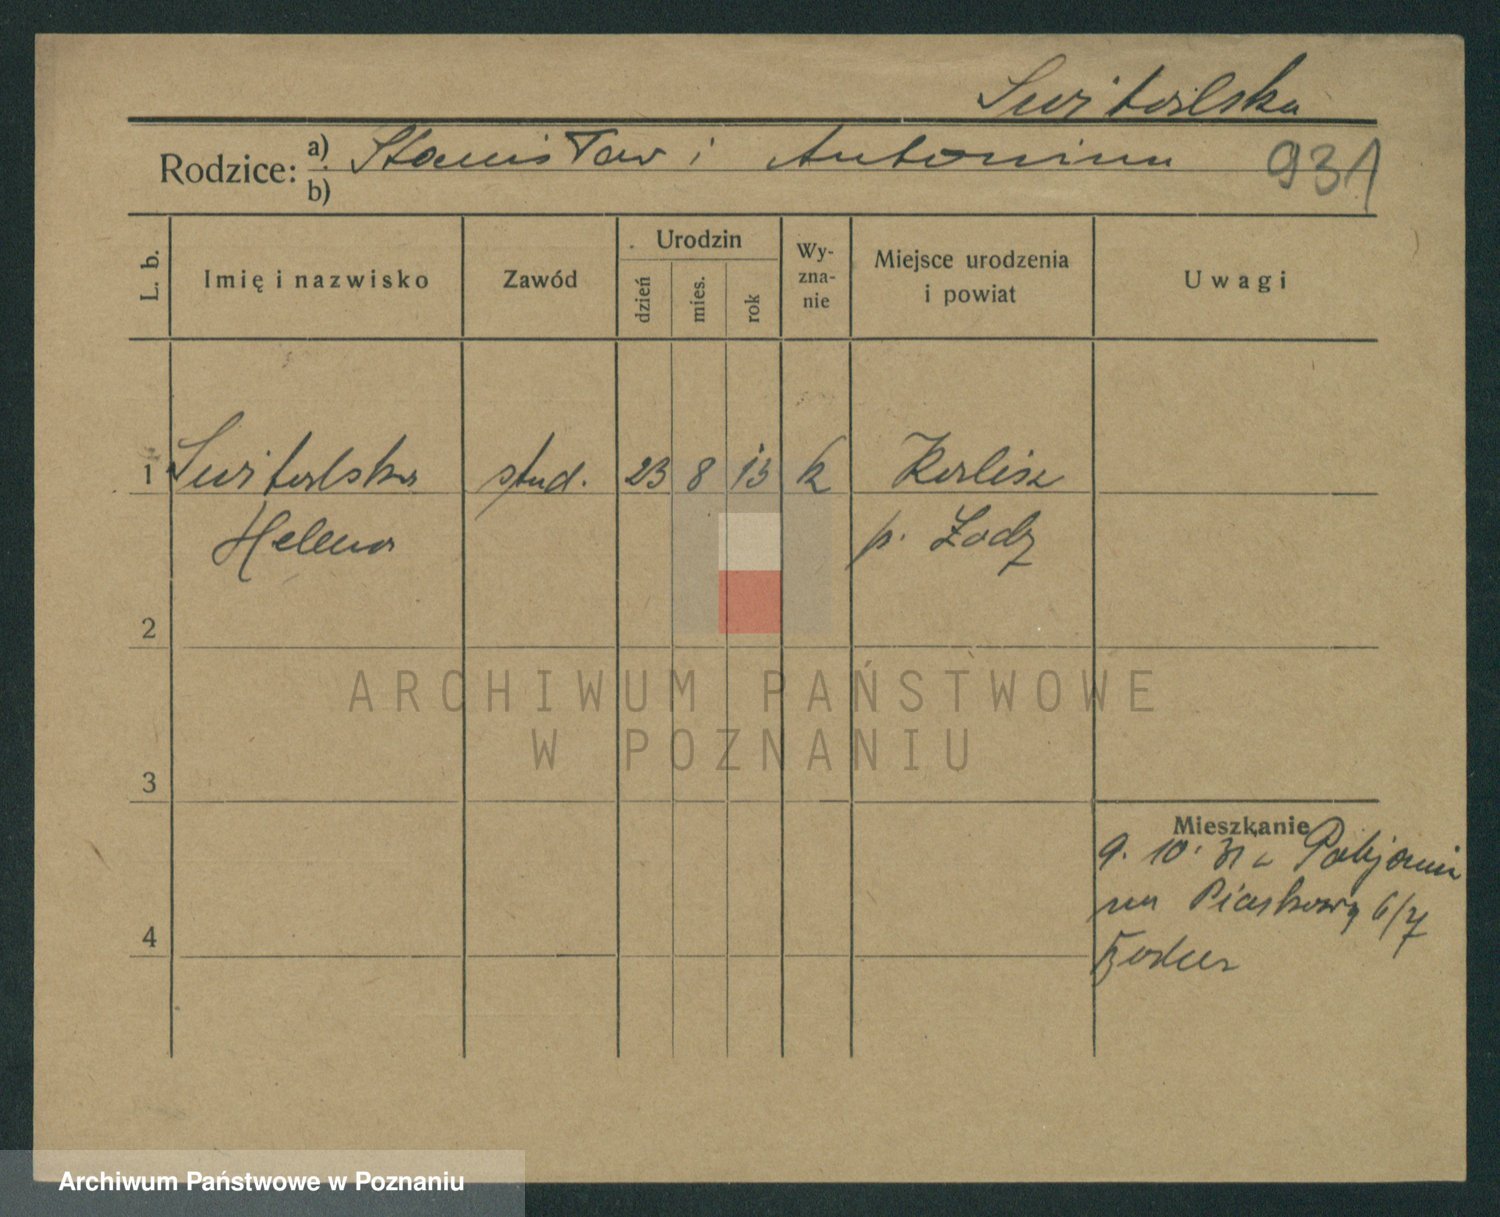 Switalska
Rodzice: a) Stanisław i Antonina
b)
931
L. b.
Imię i nazwisko
Zawód
Urodzin
dzień
mies.
rok
Wy-
zna-
nie
Miejsce urodzenia
i powiat
Uwagi
1 Switalska stud. 23 8 13 k Kalisz
Helena p. Łodz
2
3
4
Mieszkanie
9. 10. 31 z Pabjanic
na Piaskową 6/7
ARCHIWUM PAŃSTWOWE
W POZNANIU
Archiwum Państwowe w Poznaniu